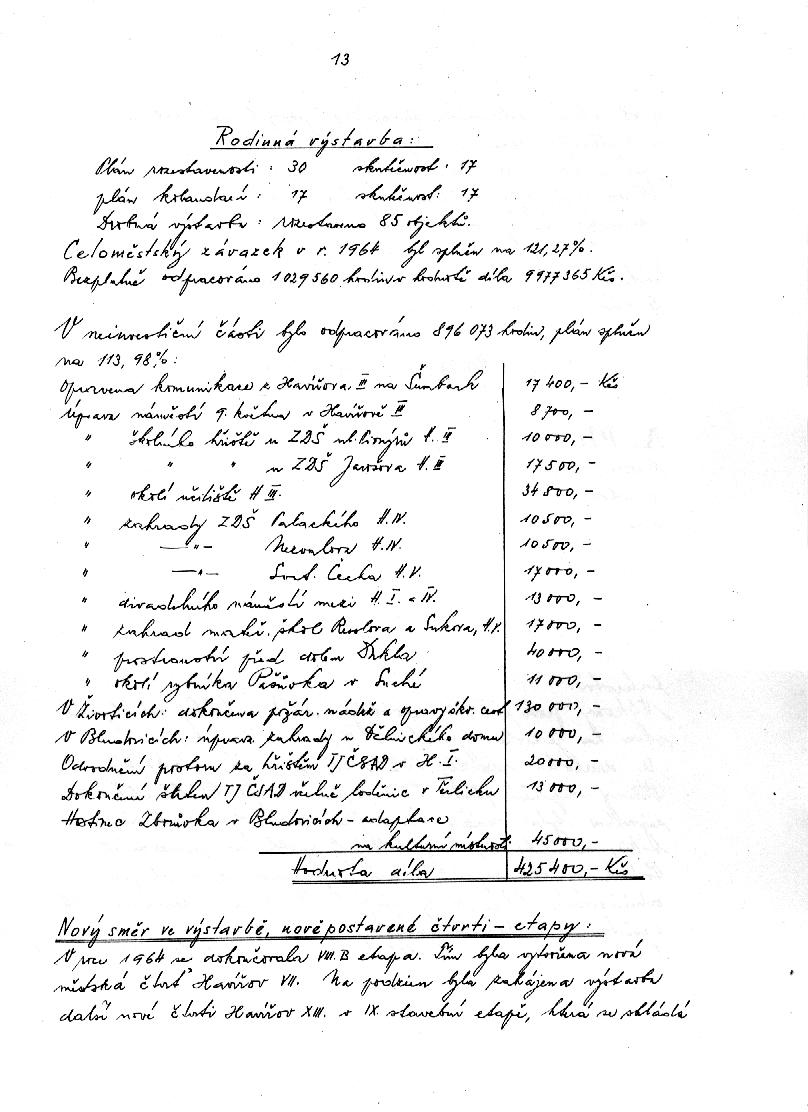 13
Rodinná výstavba:
Plán rozestavěnosti: 30 skutečnost: 17
plán kolaudací: 17 skutečnost: 17
Drobná výstavba: rozestavěno 85 objektů.
Celoměstský závazek v r. 1964 byl splněn na 121,27%.
Bezplatně odpracováno 1029560 hodin v hodnotě díla 9977365 Kčs.
V neinvestiční části bylo odpracováno 896 073 hodin, plán splněn
na 113,98%:
Opravena komunikace z Havířova II na Šumbark 17 400,- Kčs
Úprava náměstí 9. května v Havířově III 8 700,-
" školního hřiště u ZDŠ ul. H. III 10 000,-
" " " u ZDŠ Jarošova H. III 17 500,-
" okolí učiliště H III. 34 800,-
" zahrady ZDŠ Palackého H. IV. 10 500,-
" —"— Nezvalova H. IV. 10 500,-
" —"— Svat. Čecha H. V. 17 000,-
" divadelního náměstí mezi H. I. a IV. 13 000,-
" zahrad mateř. škol Resslova a Sukova, H. V. 17 000,-
" prostranství před dolem Dukla 40 000,-
" okolí rybníka Pašůvka v Suché 11 000,-
V Životicích: dokončena požár. nádrž a opravy škv. cest 130 000,-
V Bludovicích: úprava zahrady u Dělnického domu 10 000,-
Odvodnění prostoru za hřištěm TJ ČSAD v H. I. 20 000,-
Dokončení TJ ČSAD včetně loděnice v Těrlicku 13 000,-
Hostinec Zbrůvka v Bludovicích – adaptace
na kulturní místnost: 45 000,-
Hodnota díla 425 400,- Kčs
Nový směr ve výstavbě, nověpostavené čtvrti – etapy:
V roce 1964 se dokončovala VIII. B etapa. Tím byla vytvořena nová
městská čtvrť Havířov VII. Na podzim byla zahájena výstavba
další nové čtvrti Havířov XIII. v IX. stavební etapě, která se skládá